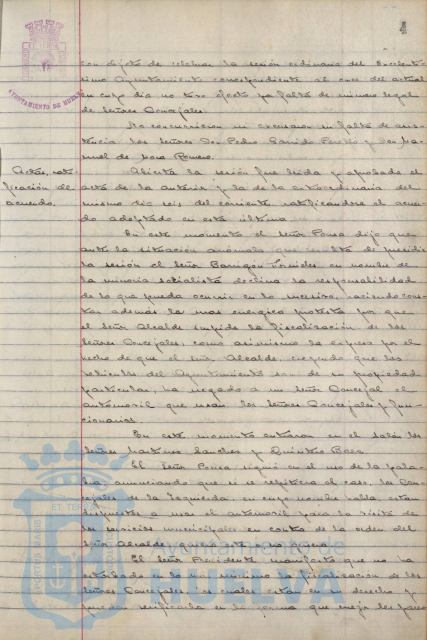 con objeto de celebrar la sesión ordinaria del Excelentí-
simo Ayuntamiento correspondiente al once del actual
en cuyo día no tuvo efecto por falta de número legal
de Señores Concejales.
No concurrieron ni excusaron su falta de asis-
tencia los Señores Don Pedro Garrido Perelló y Don Ma-
nuel de Mora Romero.
Actas, rati-
ficación de
acuerdo.
Abierta la sesión fue leída y aprobada el
acta de la anterior y la de la extraordinaria del
mismo día seis del corriente ratificándose el acuer-
do adoptado en esta última
En este momento el Señor Ponce dijo que
ante la situación anómala que resulta de presidir
la sesión el Señor Barrigón Fornieles, en nombre de
la minoría socialista declina la responsabilidad
de lo que pueda ocurrir en lo sucesivo, haciendo cons-
tar además la más enérgica protesta por que
el Señor Alcalde impide la fiscalización de los
Señores Concejales, como asimismo la expresa por el
hecho de que el Señor Alcalde, creyendo que los
vehículos del Ayuntamiento son de su propiedad
particular, ha negado a un Señor Concejal el
automóvil que usan los Señores Concejales y fun-
cionarios.
En este momento entraron en el salón los
Señores Martínez Sánchez y Quintero Báez
El Señor Ponce siguió en el uso de la pala-
bra anunciando que si se repitiera el caso, los Con-
cejales de la Izquierda, en cuyo nombre habla, están
dispuestos a usar el automóvil para la visita de
los servicios municipales en contra de la orden del
Señor Alcalde, quiera este o no quiera.
El Señor Presidente manifestó que no ha
estorbado en lo más mínimo la fiscalización de los
Señores Concejales, los cuales están en su derecho y
pueden verificarla en la forma que mejor les parez
AYUNTAMIENTO DE HUELVA
Ayuntamiento de
HUELVA
PORTUS MARIS ET TERRAE